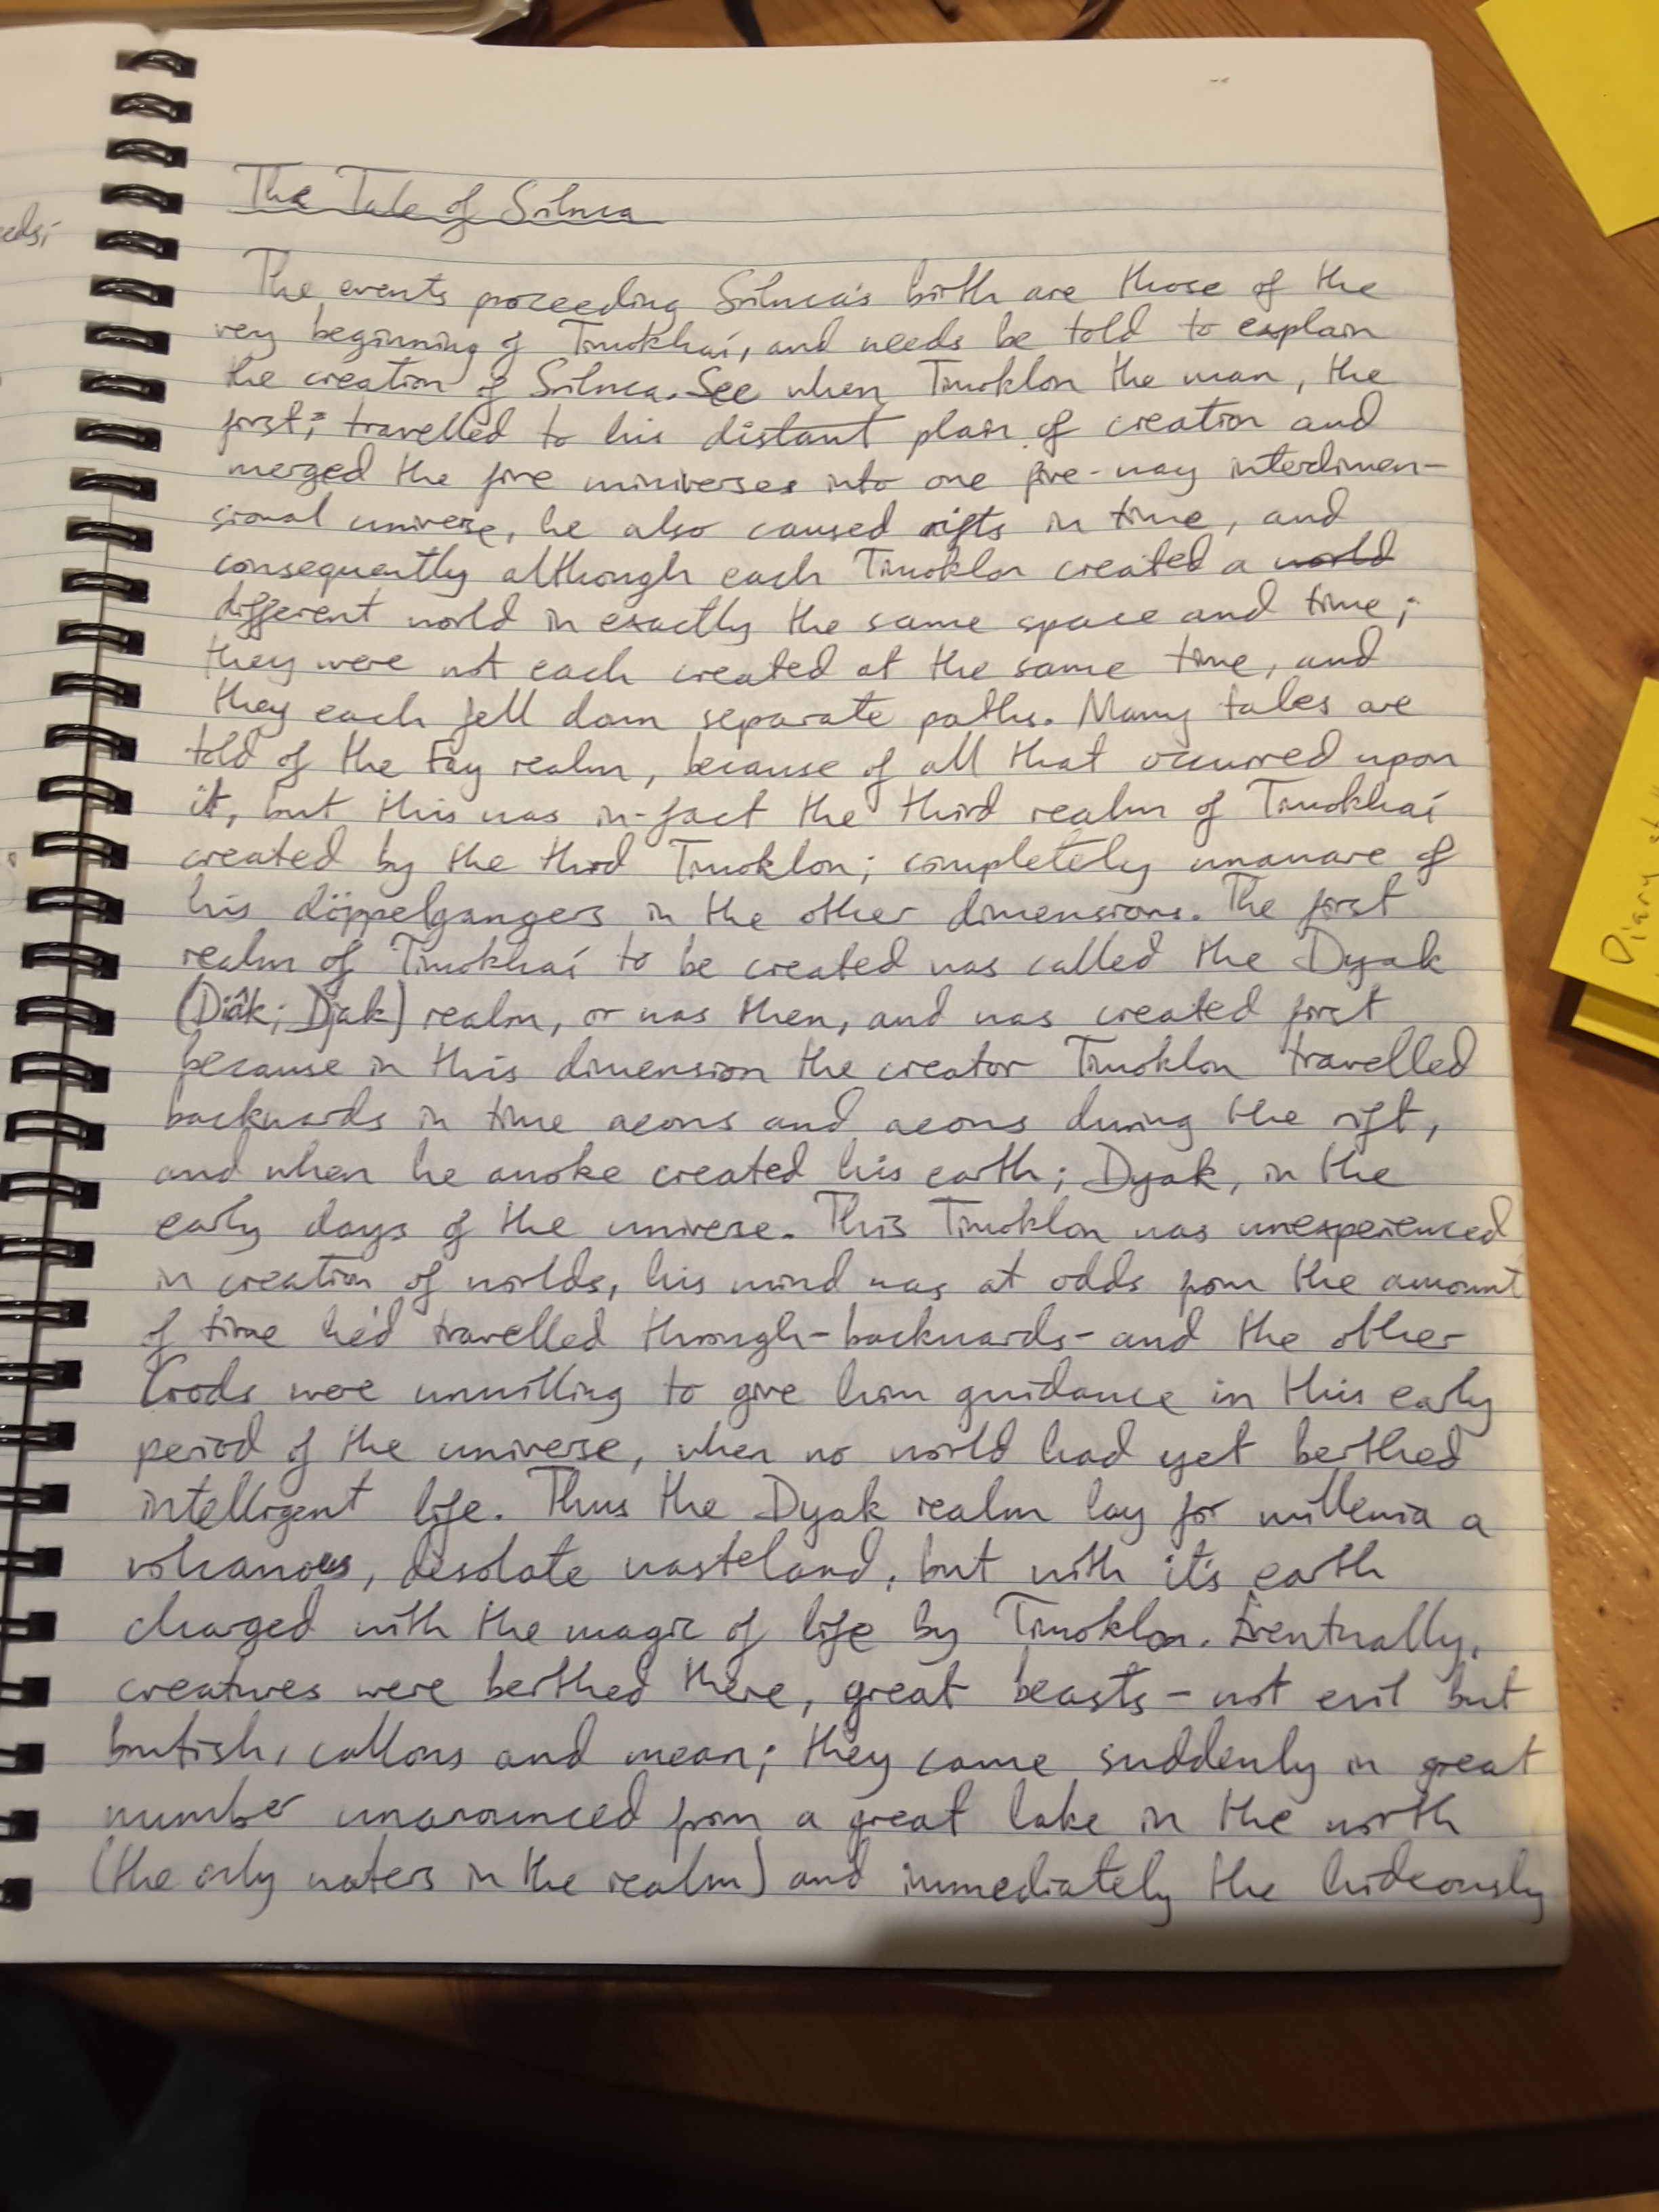 The Tale of Silnca
The events proceeding Silnca's birth are those of the
very beginning of Timokhaí, and needs be told to explain
the creation of Silnca. See when Timoklon the man, the
first; travelled to his distant plain of creation and
merged the five universes into one five-way interdimen-
sional universe, he also caused rifts in time, and
consequently although each Timoklon created a world
different world in exactly the same space and time;
they were not each created at the same time, and
they each fell down separate paths. Many tales are
told of the Fay realm, because of all that occurred upon
it, but this was in-fact the third realm of Timokhaí
created by the third Timoklon; completely unaware of
his döppelgangers in the other dimensions. The first
realm of Timokhaí to be created was called the Dyak
(Diâk; Djak) realm, or was then, and was created first
because in this dimension the creator Timoklon travelled
backwards in time aeons and aeons during the rift,
and when he awoke created his earth; Dyak, in the
early days of the universe. This Timoklon was unexperienced
in creation of worlds, his mind was at odds from the amount
of time he'd travelled through-backwards-and the other
Gods were unwilling to give him guidance in this early
period of the universe, when no world had yet berthed
intelligent life. Thus the Dyak realm lay for millenia a
volcanous, desolate wasteland, but with it's earth
charged with the magic of life by Timoklon. Eventually,
creatures were berthed there, great beasts - not evil but
brutish, callous and mean; they came suddenly in great
number unanounced from a great lake in the north
(the only waters in the realm) and immediately the hideously
eeds;
Diary